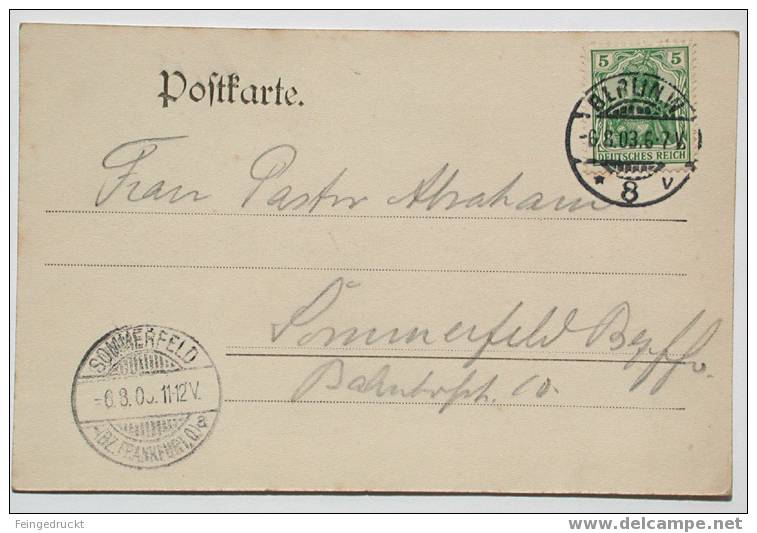 Postkarte.
5 5
DEUTSCHES REICH
BERLIN W
-6.8.03.6-7V.
* 8 v
Frau Pastor Abraham
Sommerfeld Bez. Ffo.
Bahnhofstr. 10.
SOMMERFELD
-6.8.03. 11-12V.
(BZ. FRANKFURT, O) a
Feingedruckt
delcampe.net